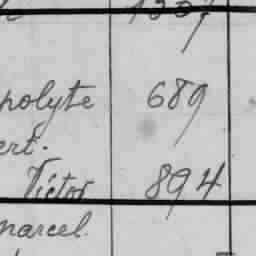 polyte 689
ert.
Victor 894
marcel.